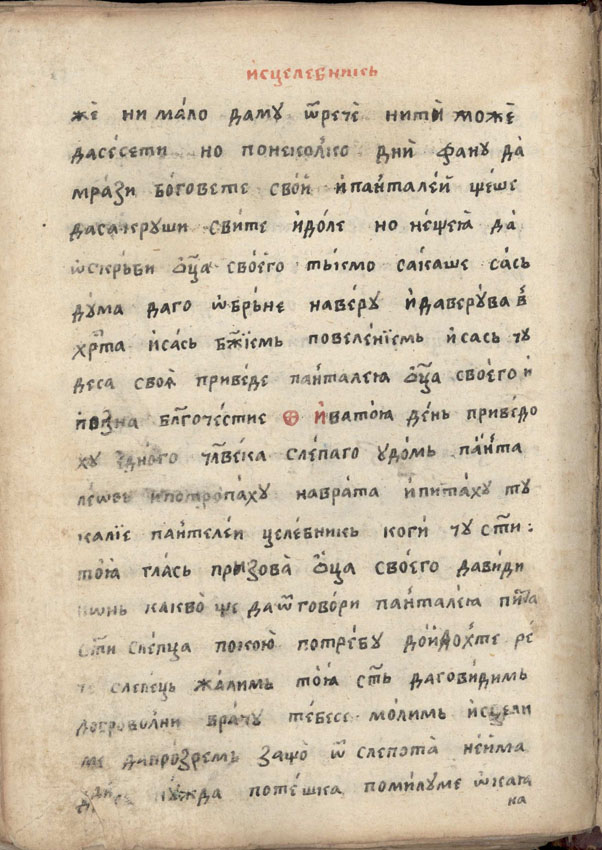 исцелебникь
же ни мало даму ѿрече нитѝ може
дасесети но понеколко днй фану да
мрази боговете свои ипанталей ѱеше
даса свите идоле но неѱею да
ѡскръби ѻца своего тькмо сакаше сась
дума даго ѡбръне наверу идаверува в
хрта исась бжїемь повеленїемь исась чу
деса своя приведе панталею ѻца своего и
позна блгочестие иватою день приведо
ху едного члвека слепаго удомь панта
леѡвь ипотропаху наврата ипитаху ту
калїе пантелеи целебникь коги чу сти:
тою глась призова ѻца своего давиди
какво ѱе даѿговори панталею пита
сти слепца покою потребу дойдохте ре
слепець жалимь тою сть даговидимь
доброволни врачу тебесе молимь исцели
ме дапрозремь заѱо ѿ слепота неима
нужда потешка помилуме ѡкаꙗ
на